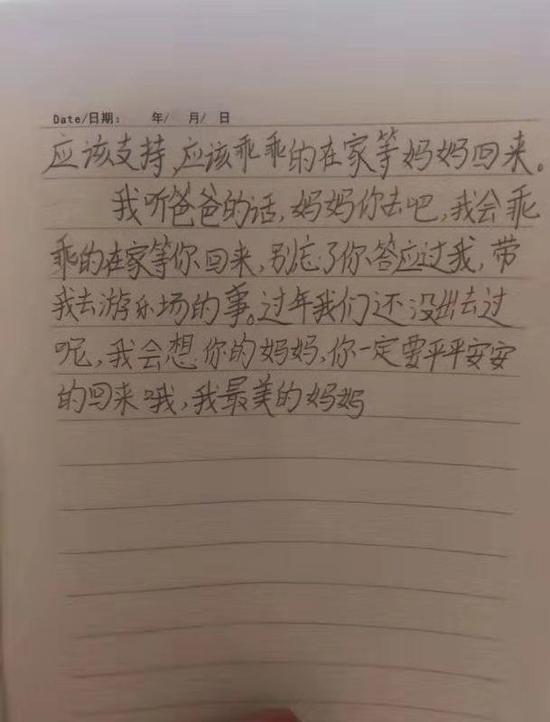 Date/日期: 年/ 月/ 日
应该支持,应该乖乖的在家等妈妈回来。
我听爸爸的话,妈妈你去吧,我会乖
乖的在家等你回来,别忘了你答应过我,带
我去游乐场的事。过年我们还没出去过
呢,我会想你的妈妈,你一定要平平安安
的回来哦,我最美的妈妈